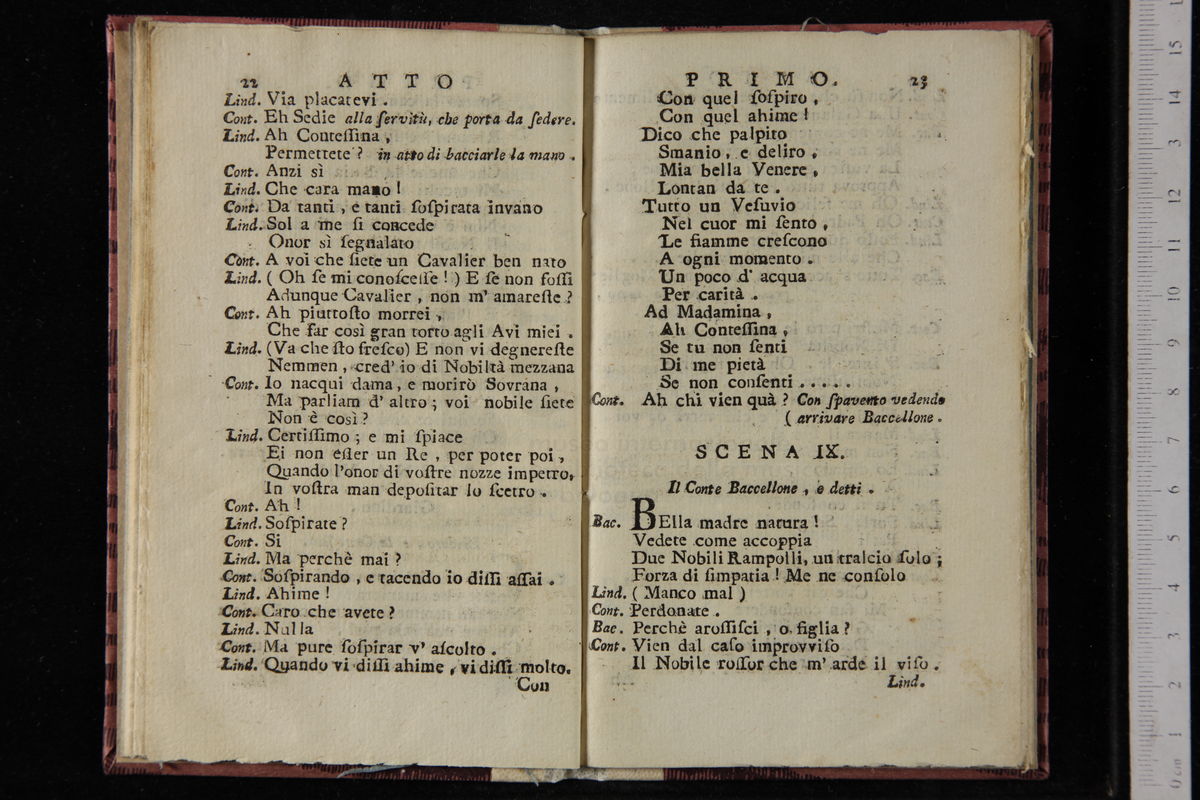 22 ATTO
Lind. Via placatevi .
Cont. Eh Sedie alla ſervitù, che porta da ſedere.
Lind. Ah Conteſſina ,
Permettete ? in atto di bacciarle la mano .
Cont. Anzi sì
Lind. Che cara mano !
Cont. Da tanti , e tanti ſoſpirata invano
Lind. Sol a me ſi concede
Onor sì ſegnalato
Cont. A voi che ſiete un Cavalier ben nato
Lind. ( Oh ſe mi conoſceſſe ! ) E ſe non foſſi
Adunque Cavalier , non m' amareſte ?
Cont. Ah piuttoſto morrei ,
Che far così gran torto agli Avi miei .
Lind. (Va che ſto freſco) E non vi degnereſte
Nemmen , cred' io di Nobiltà mezzana
Cont. Io nacqui dama , e morirò Sovrana ,
Ma parliam d' altro ; voi nobile ſiete
Non è così ?
Lind. Certiſſimo ; e mi ſpiace
Ei non eſſer un Re , per poter poi ,
Quando l'onor di voſtre nozze impetro,
In voſtra man depoſitar lo ſcetro .
Cont. Ah !
Lind. Soſpirate ?
Cont. Si
Lind. Ma perchè mai ?
Cont. Soſpirando , e tacendo io diſſi aſſai .
Lind. Ahime !
Cont. Caro che avete ?
Lind. Nulla
Cont. Ma pure ſoſpirar v' aſcolto .
Lind. Quando vi diſſi ahime , vi diſſi molto.
Con
PRIMO. 23
Con quel ſoſpiro ,
Con quel ahime !
Dico che palpito
Smanio , e deliro ,
Mia bella Venere ,
Lontan da te .
Tutto un Veſuvio
Nel cuor mi ſento ,
Le fiamme creſcono
A ogni momento .
Un poco d' acqua
Per carità .
Ad Madamina ,
Ah Conteſſina ,
Se tu non ſenti
Di me pietà
Se non conſenti . . . . .
Cont. Ah chi vien quà ? Con ſpavento vedendo
( arrivare Baccellone .
SCENA IX.
Il Conte Baccellone , e detti .
Bac. BElla madre natura !
Vedete come accoppia
Due Nobili Rampolli, un tralcio ſolo ;
Forza di ſimpatia ! Me ne conſolo
Lind. ( Manco mal )
Cont. Perdonate .
Bac. Perchè aroſſiſci , o figlia ?
Cont. Vien dal caſo improvviſo
Il Nobile roſſor che m' arde il viſo .
Lind.
0 cm 1 2 3 4 5 6 7 8 9 10 11 12 13 14 15